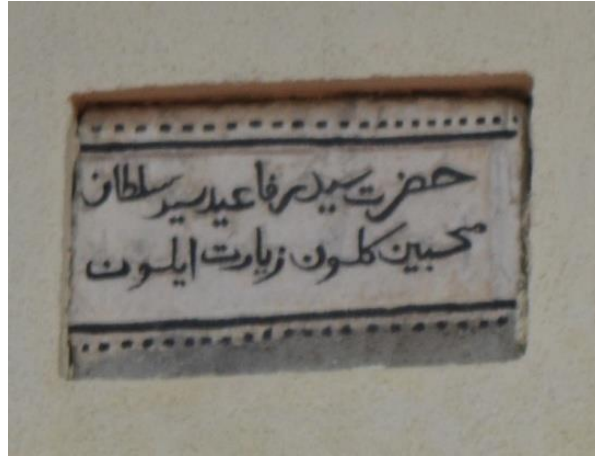 حضرت سيد رفاعيد سيد سلطان
محبين كلسون زيارت ايلسون